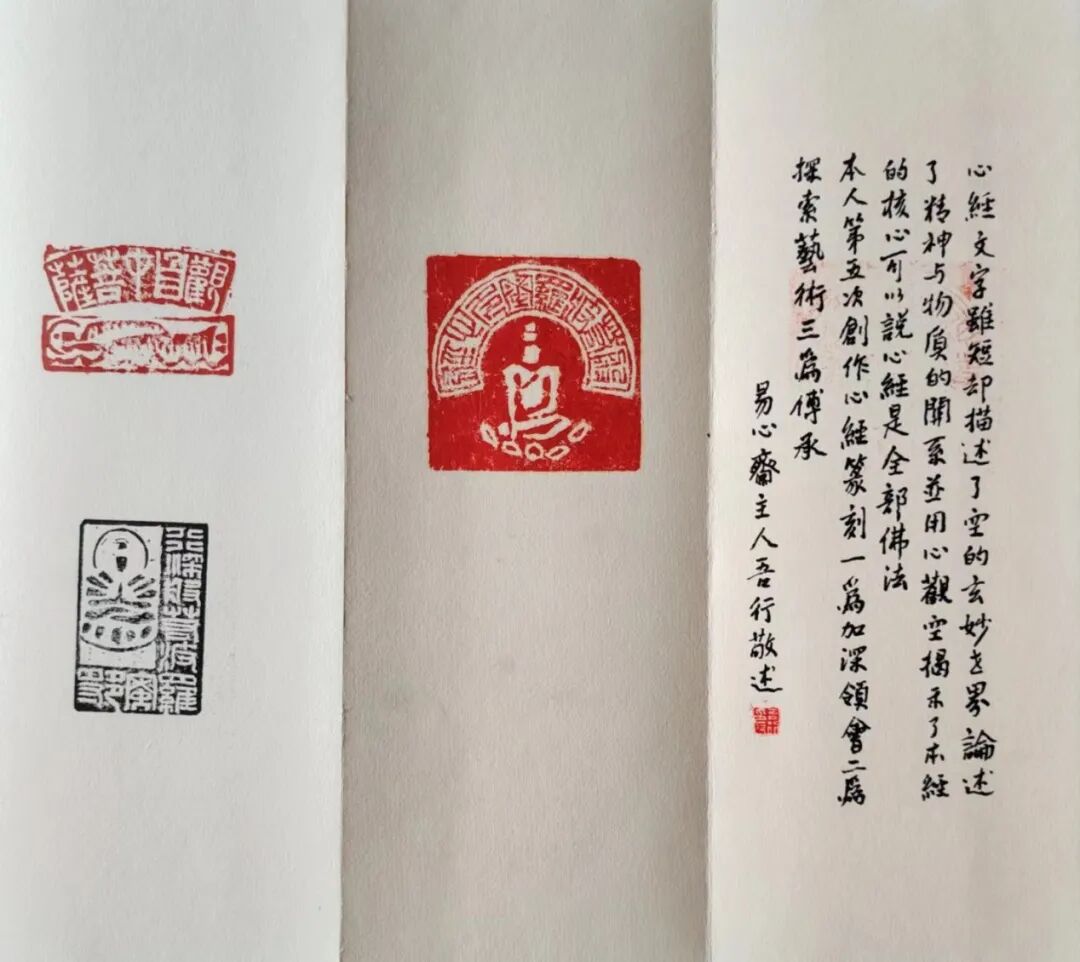 心經文字雖短却描述了空的玄妙世界論述
了精神与物质的關系並用心觀空揭示了本經
的核心可以説心經是全部佛法
本人第五次創作心經篆刻一為加深領會二為
探索藝術三為傳承
易心齋主人吾行敬述
觀自在菩薩
行深般若波羅